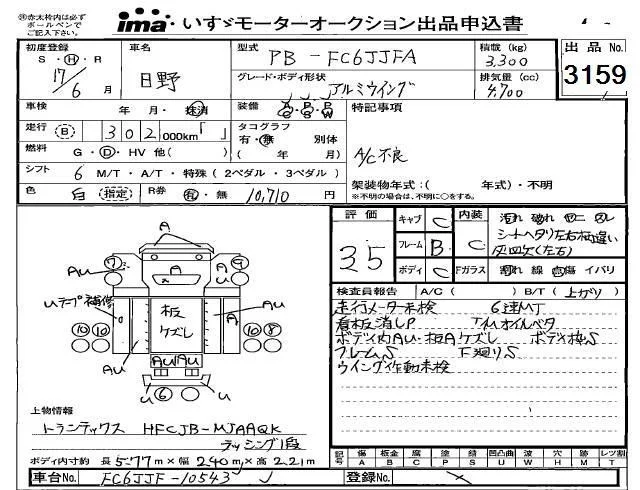 ㊟赤太枠内は必ず
ボールペンで
ご記入下さい。
ima いすゞモーターオークション出品申込書
初度登録 車名 型式 PB-FC6JJFA 積載(kg) 3,300 出品No. 3159
S・H・R 17/6月 日野 グレード・ボディ形状 アルミウイング 排気量(cc) 4,700
車検 年・月・抹消 装備 A/C P/S P/W 特記事項
走行 (B) 302,000km「 」 タコグラフ 有・無 別体
燃料 G・D・HV 他( ) ( 年 月) A/C不良
シフト 6 M/T・A/T・特殊(2ペダル・3ペダル)
架装物年式:( 年式)・不明
色 白 (指定) R券 有・無 10,710円 ※不明の場合は、不明に○をする。
評価 35 キャブ C 内装 C
フレーム B
ボディ C Fガラス 割れ 線 点傷 イバリ
シートヘタリ左右柄違い
A
A
7 9
Au Au
Uテープ補修
板 ケズレ
Au
A
10 10 10 8
Au
AuAu
U 6 U
検査員報告 A/C( ) B/T(上がり)
走行メーター未検 6速MT
看板消しP T/Mオイルベタ
ボディ内Au・板Aケズレ ボディ枠S
フレームS 下廻りS
ウイング作動未検
上物情報
トランテックス HFCJB-MJAAQK
ラッシング1段
ボディ内寸約 長5.77m×幅2.40m×高2.21m
記号 傷A 板金B 腐C 塗P 錆S 凹凸曲U 波W 穴H 跡M レツ割T
車台No. FC6JJF-10543 登録No.